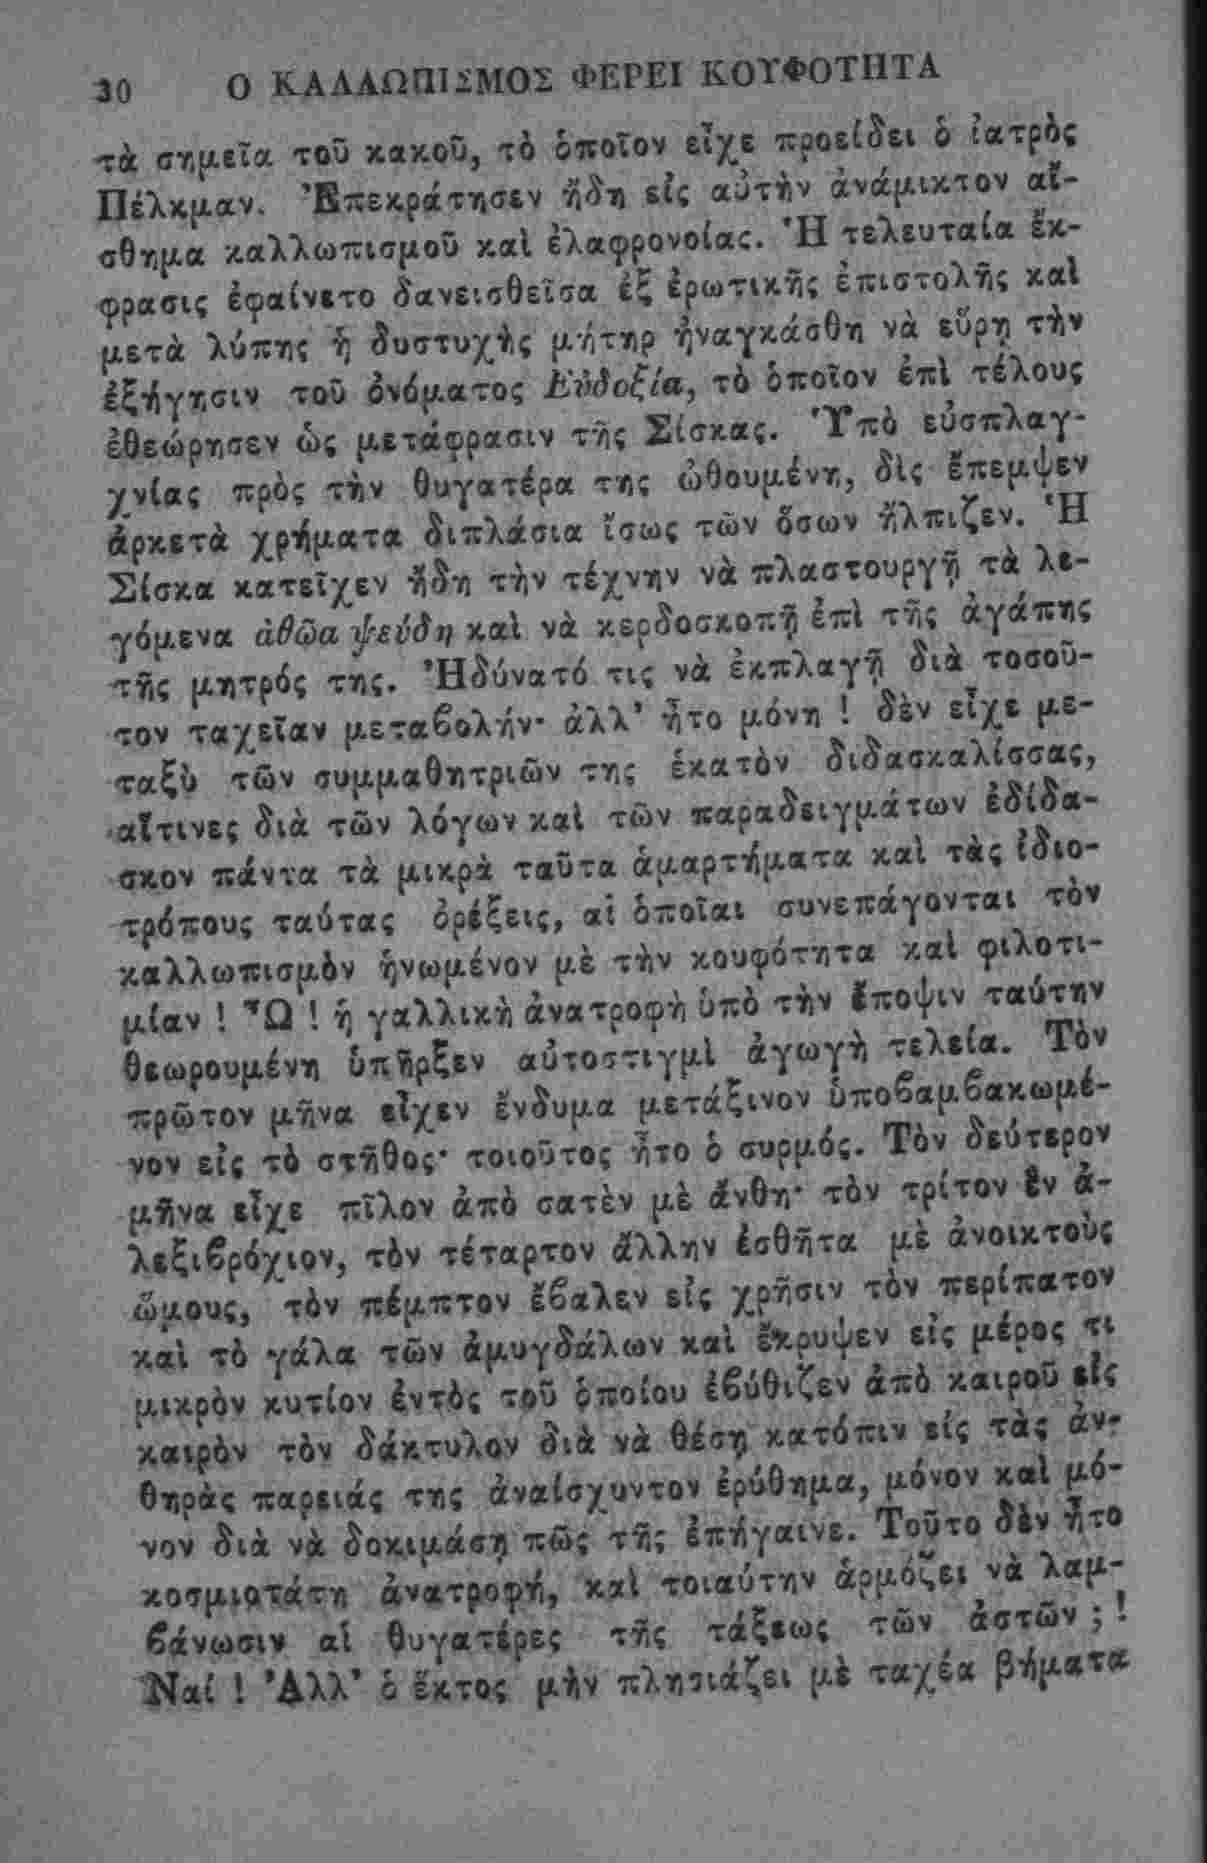 30 Ο ΚΑΛΛΩΠΙΣΜΟΣ ΦΕΡΕΙ ΚΟΥΦΟΤΗΤΑ
τὰ σημεῖα τοῦ κακοῦ, τὸ ὁποῖον εἶχε προείδει ὁ ἰατρὸς
Πέλκμαν. Ἐπεκράτησεν ἤδη εἰς αὐτὴν ἀνάμικτον αἴ-
σθημα καλλωπισμοῦ καὶ ἐλαφρονοίας. Ἡ τελευταία ἔκ-
φρασις ἐφαίνετο δανεισθεῖσα ἐξ ἐρωτικῆς ἐπιστολῆς καὶ
μετὰ λύπης ἡ δυστυχὴς μήτηρ ἠναγκάσθη νὰ εὕρῃ τὴν
ἐξήγησιν τοῦ ὀνόματος Εὐδοξία, τὸ ὁποῖον ἐπὶ τέλους
ἐθεώρησεν ὡς μετάφρασιν τῆς Σίσκας. Ὑπὸ εὐσπλαγ-
χνίας πρὸς τὴν θυγατέρα της ὠθουμένη, δὶς ἔπεμψεν
ἀρκετὰ χρήματα διπλάσια ἴσως τῶν ὅσων ἤλπιζεν. Ἡ
Σίσκα κατεῖχεν ἤδη τὴν τέχνην νὰ πλαστουργῇ τὰ λε-
γόμενα ἀθῶα ψεύδη καὶ νὰ κερδοσκοπῇ ἐπὶ τῆς ἀγάπης
τῆς μητρός της. Ἠδύνατό τις νὰ ἐκπλαγῇ διὰ τοσοῦ-
τον ταχεῖαν μεταβολήν· ἀλλ’ ἦτο μόνη ! δὲν εἶχε με-
ταξὺ τῶν συμμαθητριῶν της ἑκατὸν διδασκαλίσσας,
αἵτινες διὰ τῶν λόγων καὶ τῶν παραδειγμάτων ἐδίδα-
σκον πάντα τὰ μικρὰ ταῦτα ἁμαρτήματα καὶ τὰς ἰδιο-
τρόπους ταύτας ὀρέξεις, αἱ ὁποῖαι συνεπάγονται τὸν
καλλωπισμὸν ἡνωμένον μὲ τὴν κουφότητα καὶ φιλοτι-
μίαν ! Ὢ ! ἡ γαλλικὴ ἀνατροφὴ ὑπὸ τὴν ἔποψιν ταύτην
θεωρουμένη ὑπῆρξεν αὐτοστιγμὶ ἀγωγὴ τελεία. Τὸν
πρῶτον μῆνα εἶχεν ἔνδυμα μετάξινον ὑποβαμβακωμέ-
νον εἰς τὸ στῆθος· τοιοῦτος ἦτο ὁ συρμός. Τὸν δεύτερον
μῆνα εἶχε πῖλον ἀπὸ σατὲν μὲ ἄνθη· τὸν τρίτον ἓν ἀ-
λεξιβρόχιον, τὸν τέταρτον ἄλλην ἐσθῆτα μὲ ἀνοικτοὺς
ὤμους, τὸν πέμπτον ἔβαλεν εἰς χρῆσιν τὸν περίπατον
καὶ τὸ γάλα τῶν ἀμυγδάλων καὶ ἔκρυψεν εἰς μέρος τι
μικρὸν κυτίον ἐντὸς τοῦ ὁποίου ἐβύθιζεν ἀπὸ καιροῦ εἰς
καιρὸν τὸν δάκτυλον διὰ νὰ θέσῃ κατόπιν εἰς τὰς ἀν-
θηρὰς παρειάς της ἀναίσχυντον ἐρύθημα, μόνον καὶ μό-
νον διὰ νὰ δοκιμάσῃ πῶς τῆς ἐπήγαινε. Τοῦτο δὲν ἦτο
κοσμιοτάτη ἀνατροφή, καὶ τοιαύτην ἁρμόζει νὰ λαμ-
βάνωσιν αἱ θυγατέρες τῆς τάξεως τῶν ἀστῶν ; !
Ναί ! Ἀλλ’ ὁ ἕκτος μὴν πλησιάζει μὲ ταχέα βήματα